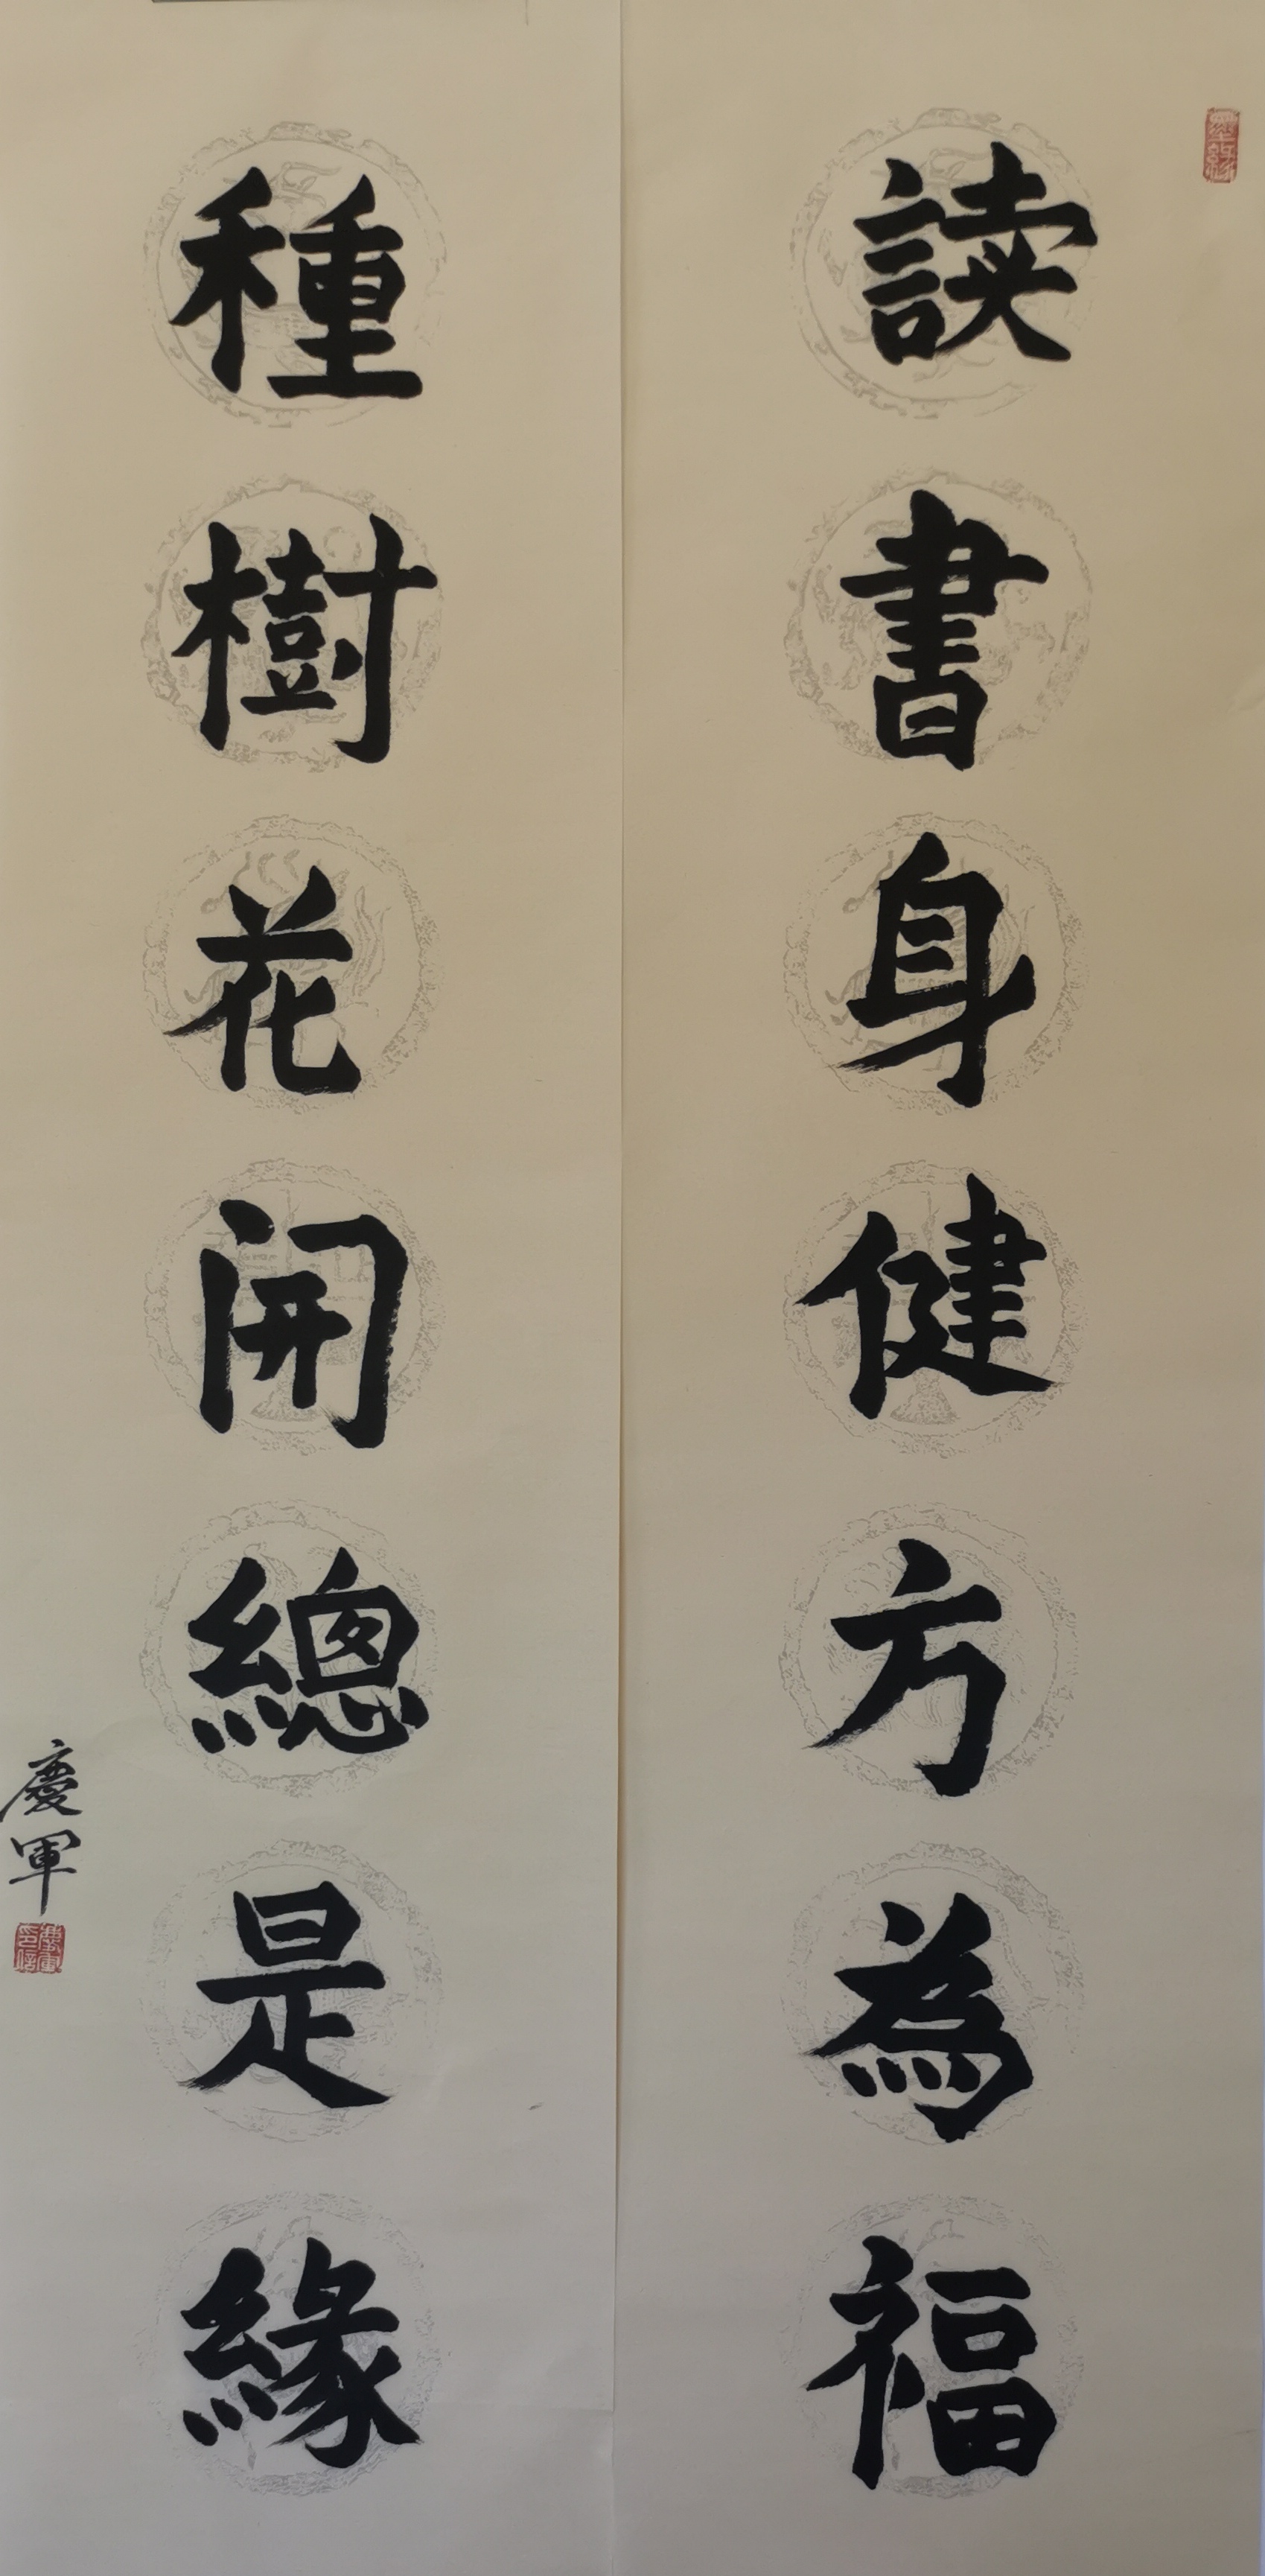 読書身健方為福
種樹花開總是緣
慶軍